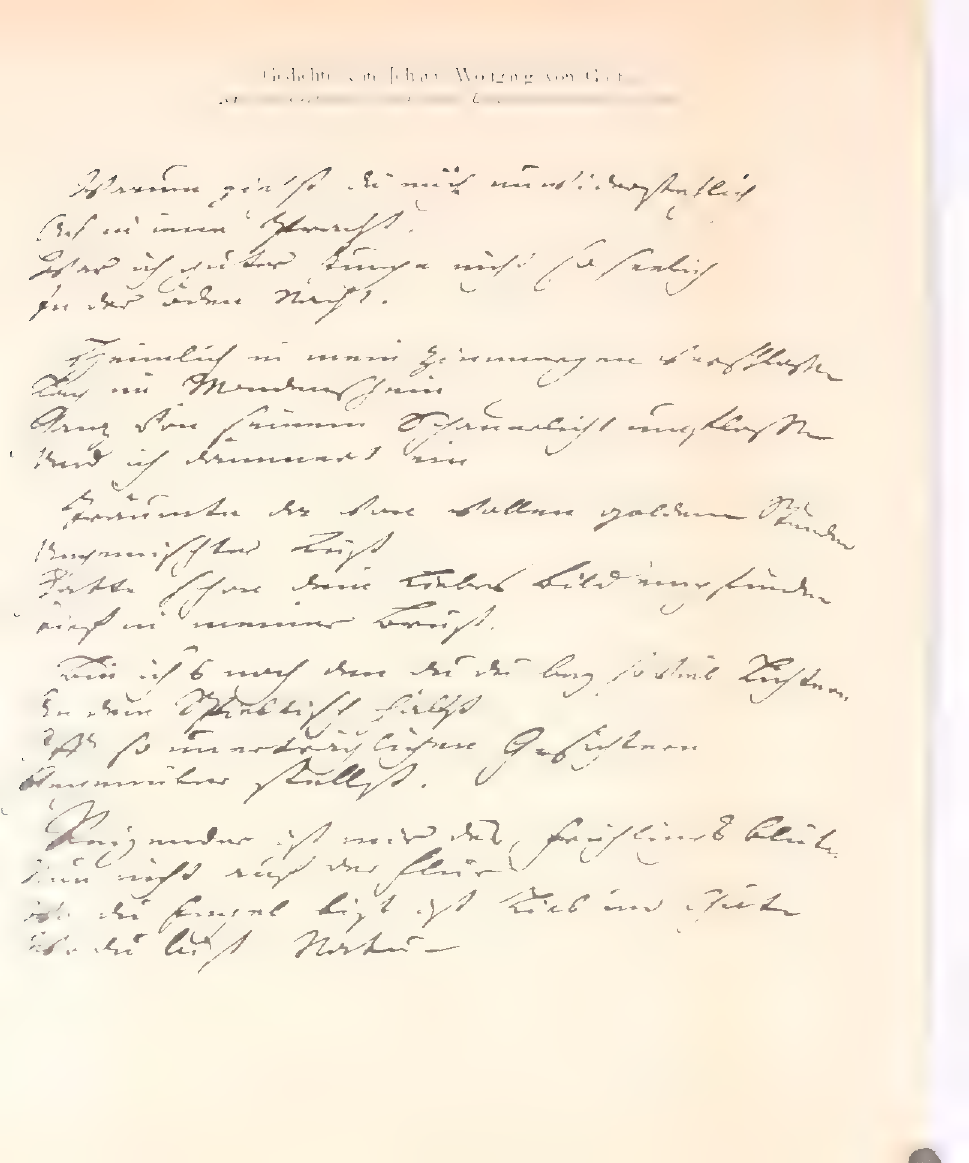 Gedichte von Johann Wolfgang von Goethe
Warum ziehst du mich unwiderstehlich
Ach in iene Pracht.
War ich guter Junge nicht so seelig
In der öden Nacht.
Heimlich in mein Zimmergen verschlossen
Lag im Mondenschein
Ganz von seinem Schauerlicht umflossen
Und ich dämmert ein
Träumte da von vollen goldenen Stunden
Ungemischter Lust
Hatte schon dein liebes Bild empfunden
Tief in meiner Brust.
Bin ichs noch den du du bey so viel Lichtern
An dem Spieltisch hältst
Oft so unerträglichen Gesichtern
Gegenüber stellst.
Reizender ist mir des Frühlings Blüte
Nun nicht auf der Flur
Wo du Engel bist ist Lieb und Güte
Wo du bist Natur